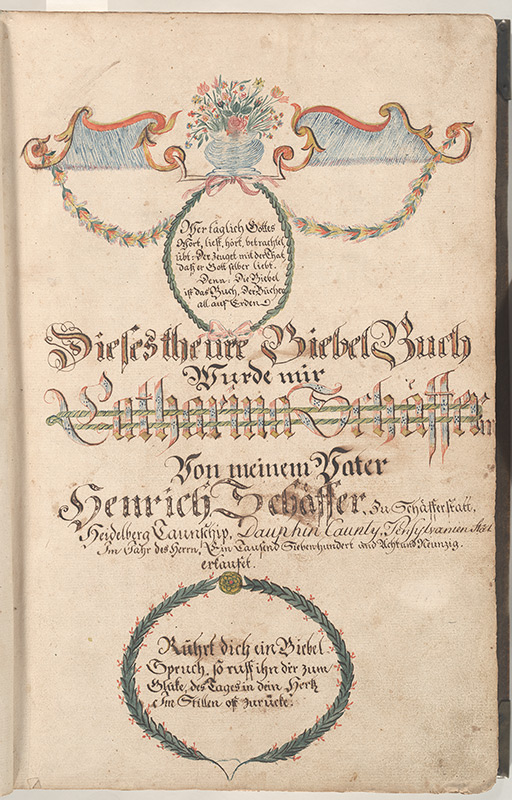 Wer täglich Gottes
Wort, liest, hört, betrachtet
übt: Der zeuget mit der That
daß er Gott selber liebt.
Denn: Die Biebel
ist das Buch, Der Bücher
all auf Erden
Dieses theure Biebel Buch
Wurde mir
Catharina Schäfferin
Von meinem Vater
Henrich Schäffer, Zu Schäfferstatt,
Heidelberg Taunschip, Dauphin Caunty, Pensylvanien
Im Jahr des Herrn, Ein Tausend Siebenhundert und Acht und Neunzig.
erkauft.
Rührt dich ein Biebel
Spruch, so ruff ihn dir zum
Glücke, des Tages in dein Hertz
Im Stillen oft zurücke.